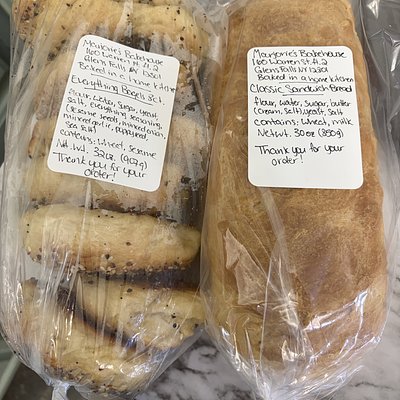 Marjorie's Bakehouse
160 Warren St. #2
Glens Falls NY 12801
Baked in a home kitchen
Everything Bagels 6ct.
flour, water, sugar, yeast,
salt, everything seasoning,
(sesame seeds, minced onion,
minced garlic, poppyseed
sea salt)
contains: wheat, sesame
Net wt. 32oz. (907g)
Thank you for your
order!
Marjorie's Bakehouse
160 Warren St. #2
Glens Falls NY 12801
Baked in a home kitchen
Classic Sandwich Bread
flour, water, sugar, butter
(cream, salt), yeast, salt
contains: wheat, milk
Net wt. 30oz (850g)
Thank you for your
order!